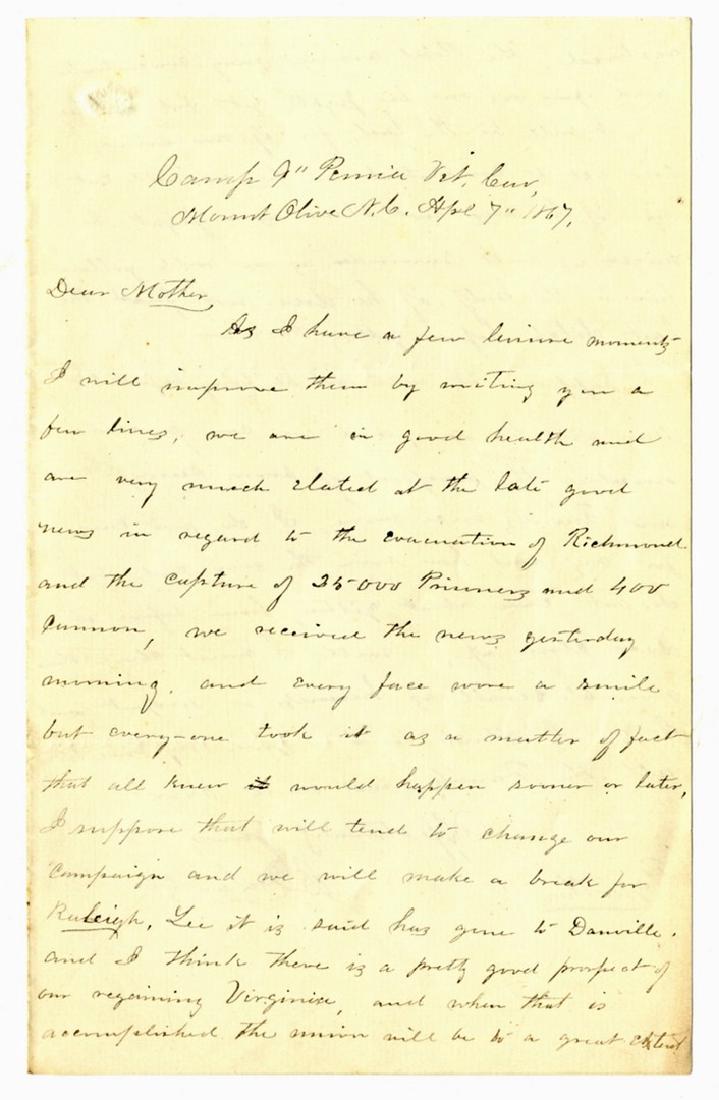 Camp 9" Penna Vet. Cav,
Mount Olive N.C. Apl 7" 1867,
Dear Mother,
As I have a few leisure moments
I will improve them by writing you a
few lines, we are in good health and
are very much elated at the late good
news in regard to the evacuation of Richmond
and the capture of 25000 Prisoners and 400
Cannon, we received the news yesterday
morning. and every face wore a smile
but every-one took it as a matter of fact
that all knew it would happen sooner or later,
I suppose that will tend to change our
campaign and we will make a break for
Raleigh, Lee it is said has gone to Danville.
and I think there is a pretty good prospect of
our regaining Virginia, and when that is
accomplished the union will be to a great extent